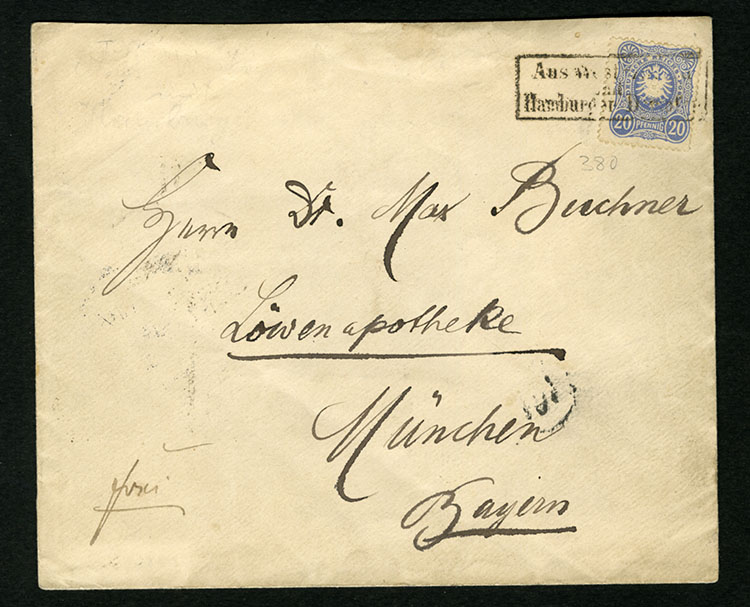 Aus West
Hamburger
20 PFENNIG 20
380
Herrn Dr. Max Buchner
Löwenapotheke
München
Bayern
frei